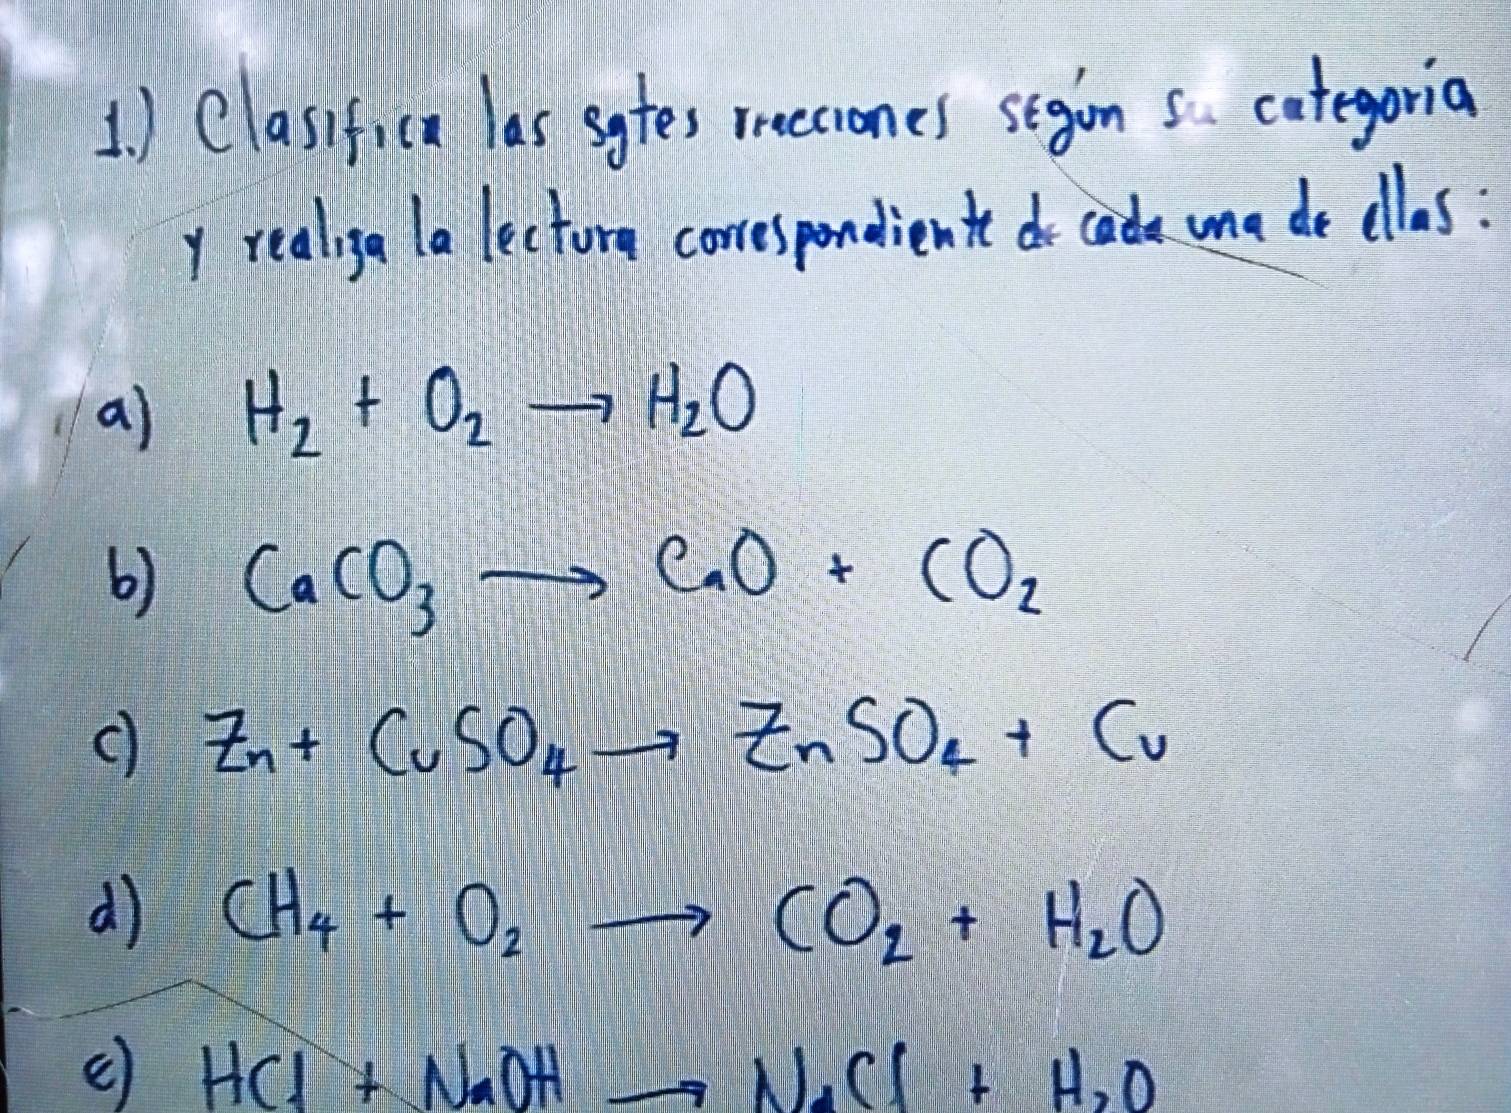 1.) Clasifica las sgtes reacciones según su categoría
y realiza la lectura correspondiente de cada una de ellas:
a) H₂ + O₂ → H₂O
b) CaCO₃ → CaO + CO₂
c) Zn + CuSO₄ → ZnSO₄ + Cu
d) CH₄ + O₂ → CO₂ + H₂O
e) HCl + NaOH → NaCl + H₂O